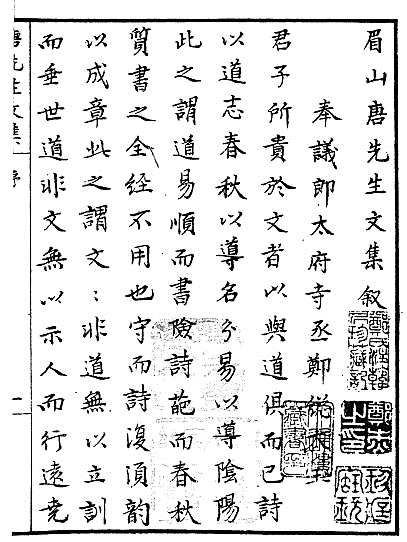 眉山唐先生文集叙
奉議郎太府寺丞鄭總
君子所貴於文者以與道俱而已詩
以道志春秋以導名分易以導陰陽
此之謂道易順而書險詩葩而春秋
質書之全經不用也字而詩復須韵
以成章此之謂文〻非道無以立訓
而垂世道非文無以示人而行遠堯
唐先生文集 序
一
藏書